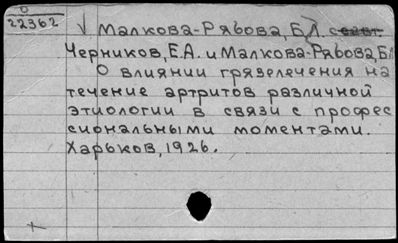 О
22362
√ Малкова-Рябова, Б.Л. соавт.
Черников, Е.А. и Малкова-Рябова, Б.Л
О влиянии грязелечения на
течение артритов различной
этиологии в связи с профес
сиональными моментами.
Харьков, 1926.